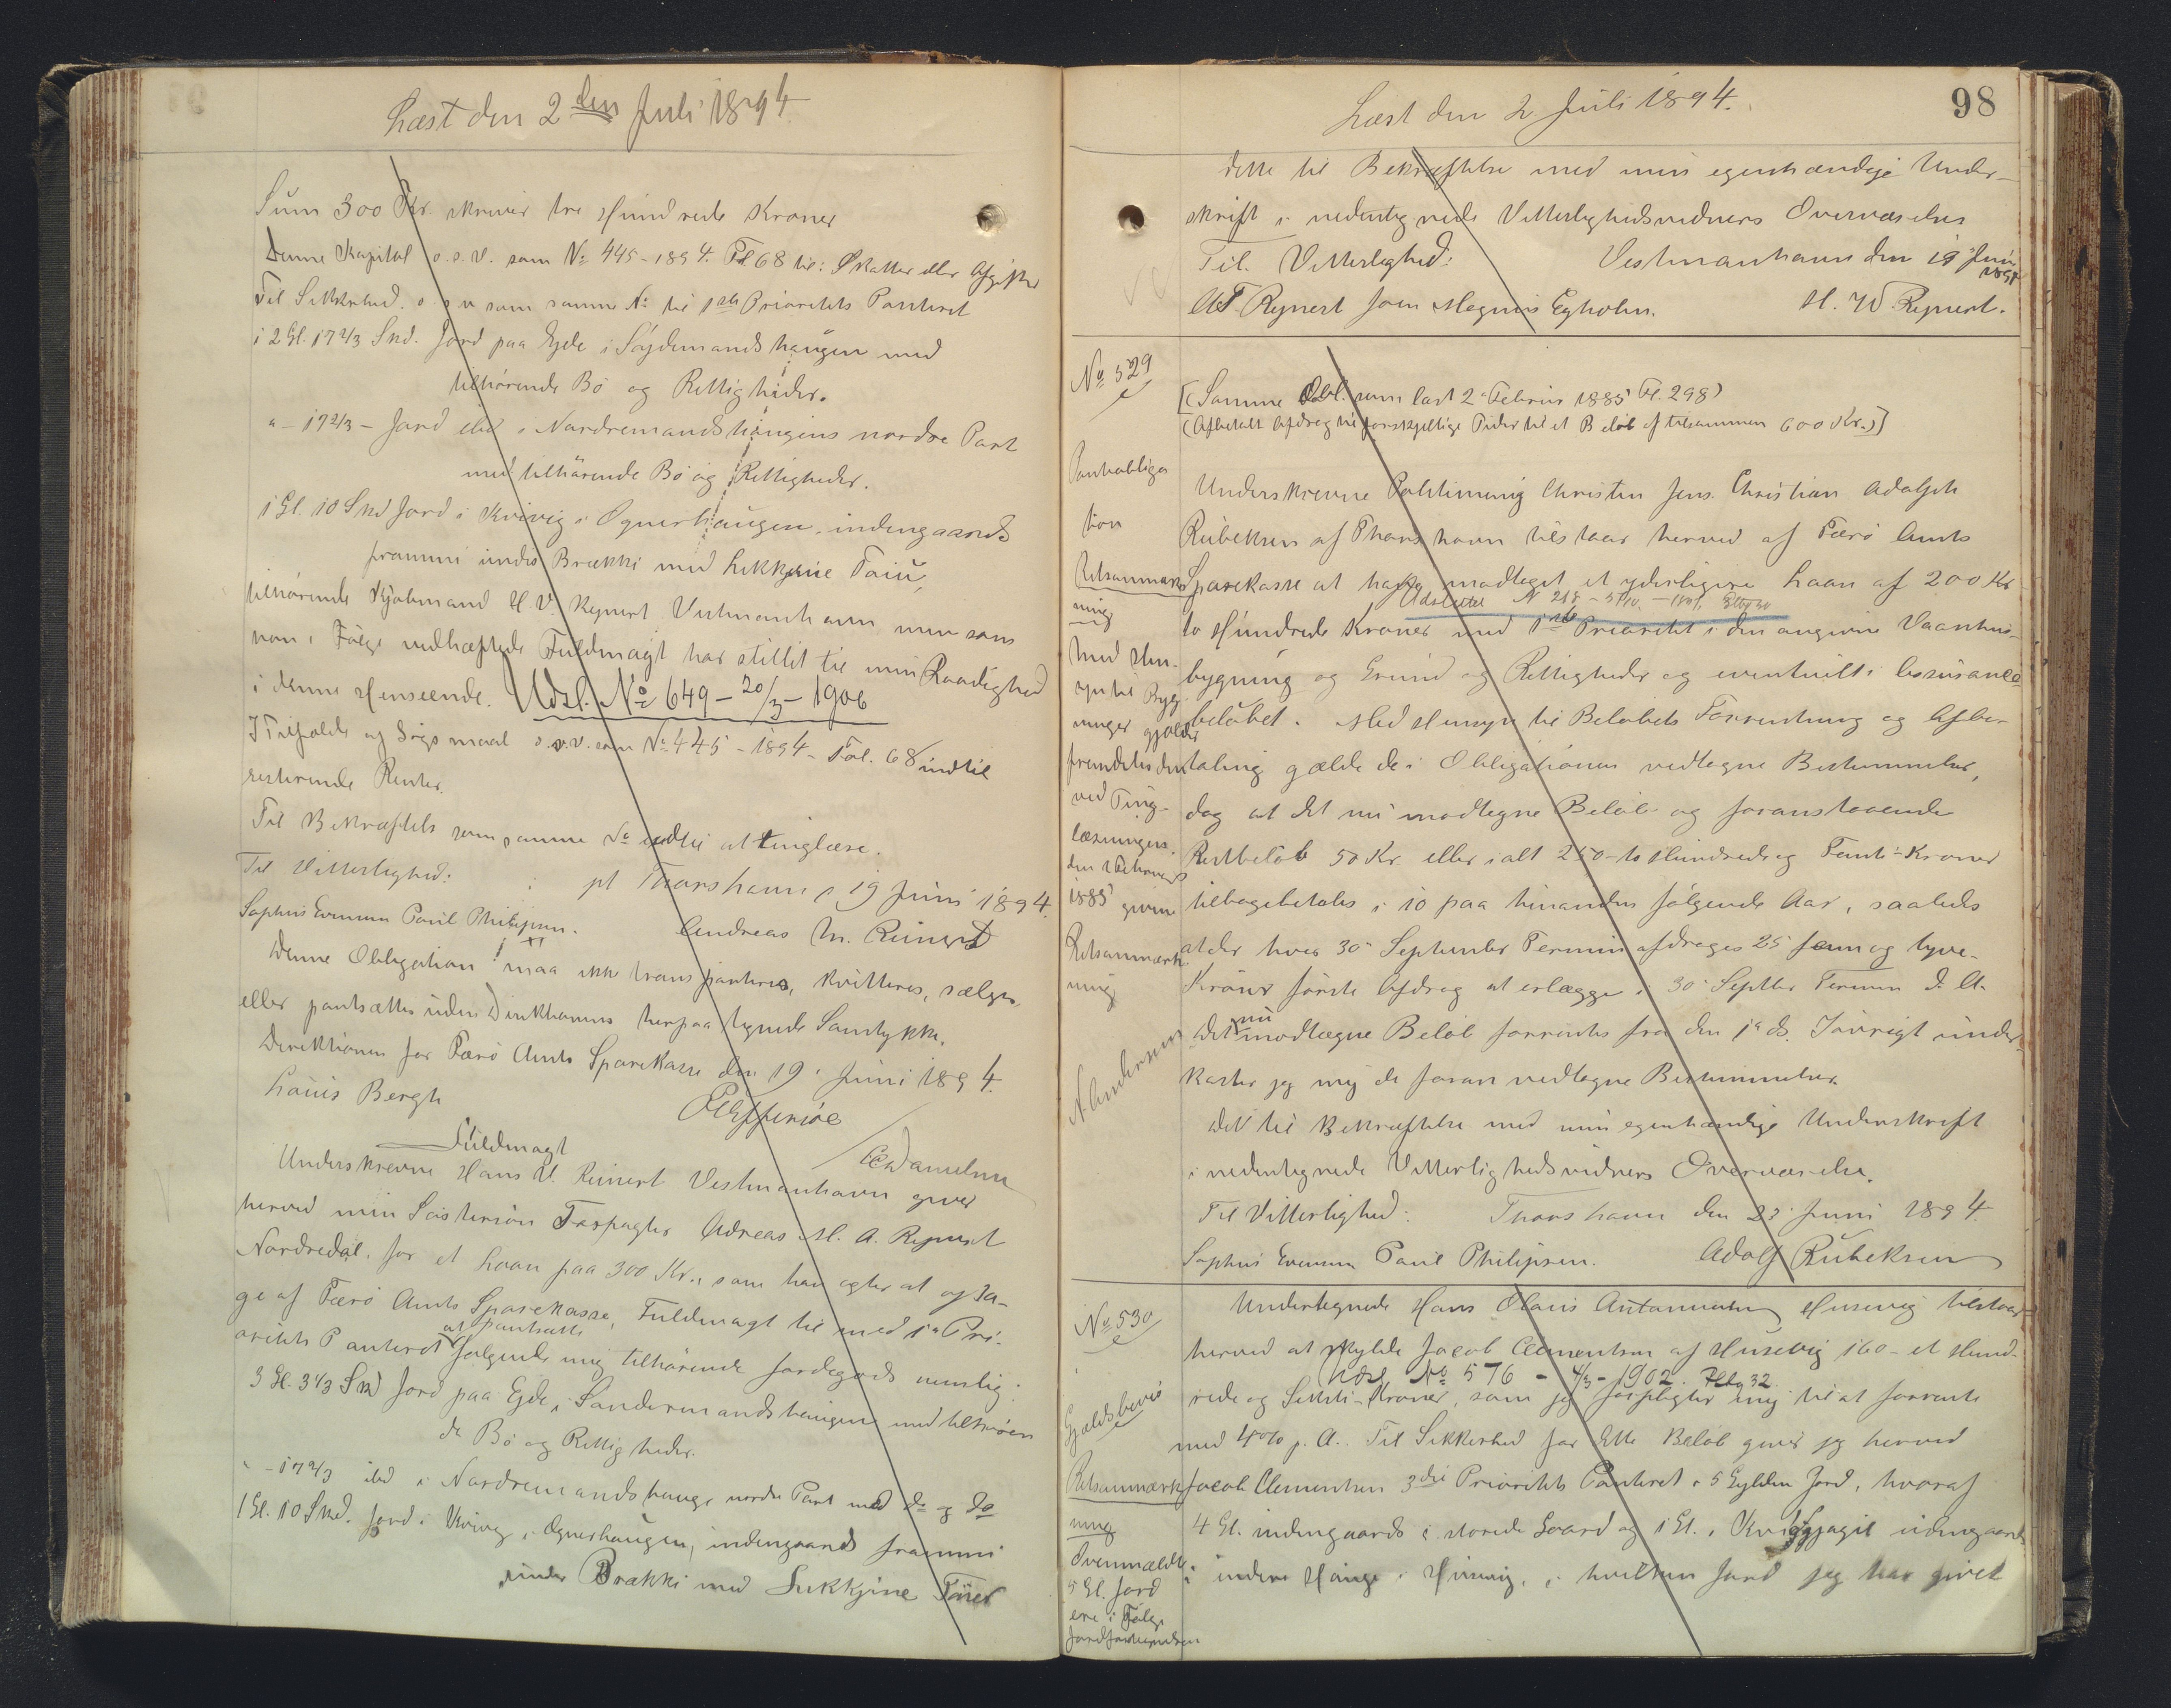 Læst den 2den Juli 1894.
Sum 300 Kr. skriver tre Hundrede Kroner
Denne Kapital o.s.v. som No 445-1894. Fol 68 til: Skatter eller Afgifter
Til Sikkerhed o.s.v. som samme No til 1ste Prioritets Panteret
i 2 Gl. 17 2/3 Skd. Jord paa Ejde i Sýdemandshaugen med
tilhørende Bö og Rettigheder.
" - 17 2/3 - Jord ibd i Nordremandshaugens nordre Part
med tilhörende Bö og Rettigheder.
1 Gl. 10 Skd Jord i Kvivig i Ognerhaugen, indengaards
frammi undir Brækki med
tilhørende Kjøbmand H. V. Reynert Vestmanhavn men som
han i Følge vedhæftede Fuldmagt har stillet til min Raadighed
i denne Henseende. Udsl. No 649 - 20/3 - 1906
I Tilfælde af Søgsmaal o.s.v. som No 445 - 1894 - Fol. 68 indtil
resterende Renter.
Til Bekræftelse som samme No indtil at tinglæse.
Til Vitterlighed: pt Thorshavn, 19 Juni 1894.
Sophus Evensen Poul Philipsen. Andreas M. Reinert
Denne Obligation maa ikke transporteres, kvitteres, sælges,
eller pantsættes uden Direktionens herpaa tegnede Samtykke.
Direktionen for Færö Amts Sparekasse den 19. Juni 1894.
Louis Bergh
Fuldmagt
Underskrevne Hans V. Reinert Vestmanhavn giver
herved min Søstersön Forpagter Adreas M. A. Reynert
Nordredal, for et Laan paa 300 Kr., som han agter at opta-
ge af Færö Amts Sparekasse, Fuldmagt til med 1a Pri-
oritets Panteret at pantsætte følgende mig tilhörende Jordegods nemlig:
3 Gl. 3 1/3 Skd Jord paa Ejde, i Söndremandshaugen med tilhören
de Bö og Rettigheder.
" - 17 2/3 ibd i Nordremandshauge nordre Part med do og do
1 Gl. 10 Skd. Jord i Kvivig i Ognerhaugen, indengaards frammi
under Brækki med Lukkjine
98
Læst den 2 Juli 1894.
Dette til Bekræftelse med min egenhændige Under-
skrift i nedentegnede Vitterlighedsvidners Overværelse
Til Vitterlighed: Vestmanhavn den 19 Juni
1894
Reynert Joen Magnus Egholm. H. W. Reynert.
No 529
[(Samme Obl. som læst 2 Februar 1885 Fl. 298)
(Afbetalt Afdrag til forskjellige Tider til et Beløb af tilsammen 600 Kr.)]
Pantobliga
tion
Retsanmærk
ning
Med Hen-
syn til Byg-
ninger gjælder
fremdeles den
ved Ting-
læsningen
den 2 Februar
1885 givne
Retsanmærk
ning
A. Andersen
Underskrevne Christen Jens Christian Adolph
Rubeksen af Thorshavn tilstaar herved af Færö Amts
Sparekasse at have modtaget et yderligere Laan af 200 Kr
Udslettet N 218
to Hundrede Kroner med 1ste Prioritet i den angivne Vaanhus-
bygning og Grund og Rettigheder og eventuelt i Assurance
beløbet. Med Hensyn til Beløbets Forrentning og Afbe-
taling gælde de i Obligationen vedtagne Bestemmelser,
dog at det nu modtagne Beløb og foranstaaende
Restbeløb 50 Kr. eller i alt 250 - to Hundrede og Femti - Kroner
tilbagebetales i 10 paa hinanden følgende Aar, saaledes
at der hver 30 September Termin afdrages 25 fem og tyve
Kroner første Afdrag at erlægge i 30 Septbr Termin d. A.
Det nu modtagne Beløb forrentes fra den 1a ds. Iøvrigt under-
kaster jeg mig de foran vedtagne Bestemmelser.
Det til Bekræftelse med min egenhændige Underskrift
i nedentegnede Vitterlighedsvidners Overværelse.
Til Vitterlighed: Thorshavn den 23 Juni 1894.
Sophus Evensen Poul Philipsen. Adolf Rubeksen
No 530
Gjældsbevis
Retsanmærk
ning
Ovenmældte
5 Gl. Jord
ere i Følge
Undertegnede Hans Olavis Husevig tilstaar
herved at skylde Jacob Clementsen af Husevig 160 - et Hund-
Udsl. No 576 - 4/3 - 1902.
rede og Seksti - Kroner, som jeg forpligter mig til at forrente
med 4% p. A. Til Sikkerhed for dette Beløb giver jeg herved
Jacob Clementsen 3die Prioritets Panteret i 5 Gylden Jord, hvoraf
4 Gl. indengaards i storede Gaard og 1 Gl. i
indere Hauge i Husevig, i hvilken Jord jeg har givet